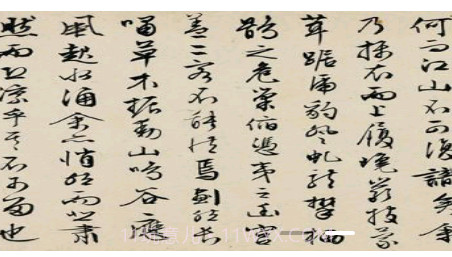 何而江山不可復識矣余
乃攝衣而上履巉巖披蒙
茸踞虎豹登虬龍攀栖
鶻之危巢俯馮夷之幽宮
蓋二客不能從焉劃然長
嘯草木振動山鳴谷應
風起水涌余亦悄然而悲肅
然而恐凜乎其不可留也